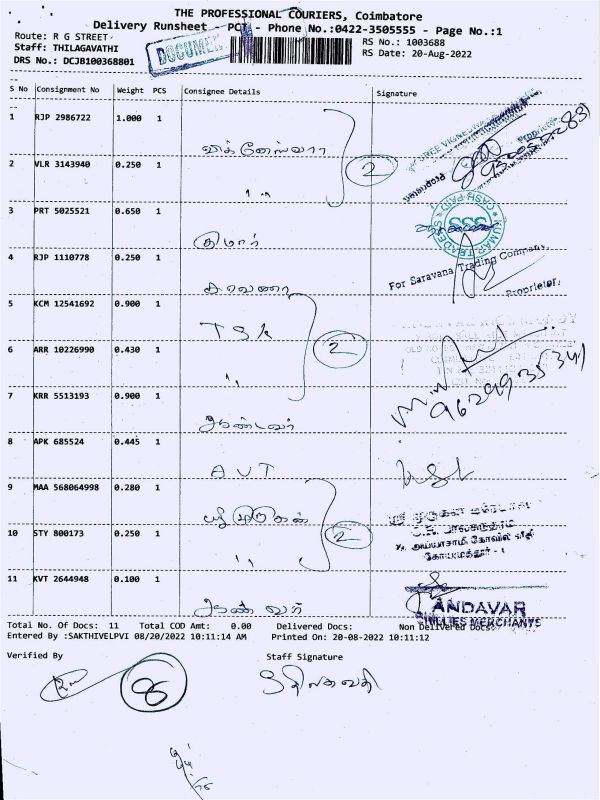 THE PROFESSIONAL COURIERS, Coimbatore
Delivery Runsheet - PCT - Phone No.:0422-3505555 - Page No.:1
Route: R G STREET
RS No.: 1003688
Staff: THILAGAVATHI
RS Date: 20-Aug-2022
DRS No.: DCJB100368801
DOCUMEN
S No Consignment No Weight PCS Consignee Details Signature
1 RJP 2986722 1.000 1
2 VLR 3143940 0.250 1 " 2
3 PRT 5025521 0.650 1 குமார்
KUMAR TRADERS CASH PAID SSS
4 RJP 1110778 0.250 1 சரவணா
For Saravana Trading Company,
Proprietor.
5 KCM 12541692 0.900 1 TSK
6 ARR 10226990 0.430 1 " 2
7 KRR 5513193 0.900 1 ஆண்டவர்
8 APK 685524 0.445 1 AVT
9 MAA 568064998 0.280 1 ஸ்ரீ முருகன்
10 STY 800173 0.250 1 " 2
அய்யாசாமி கோவில் வீதி
கோயமுத்தூர் - 1
11 KVT 2644948 0.100 1 ஆண்டவர்
ANDAVAR
MERCHANTS
Total No. Of Docs: 11 Total COD Amt: 0.00 Delivered Docs: Non Delivered Docs:
Entered By :SAKTHIVELPVI 08/20/2022 10:11:14 AM Printed On: 20-08-2022 10:11:12
Verified By Staff Signature
8 திலகவதி